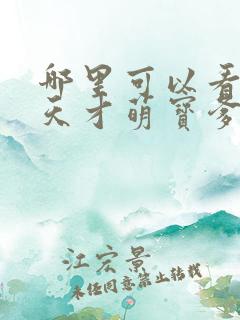 哪里可以看
天才萌寶爹
江宏景
未经同意禁止转载